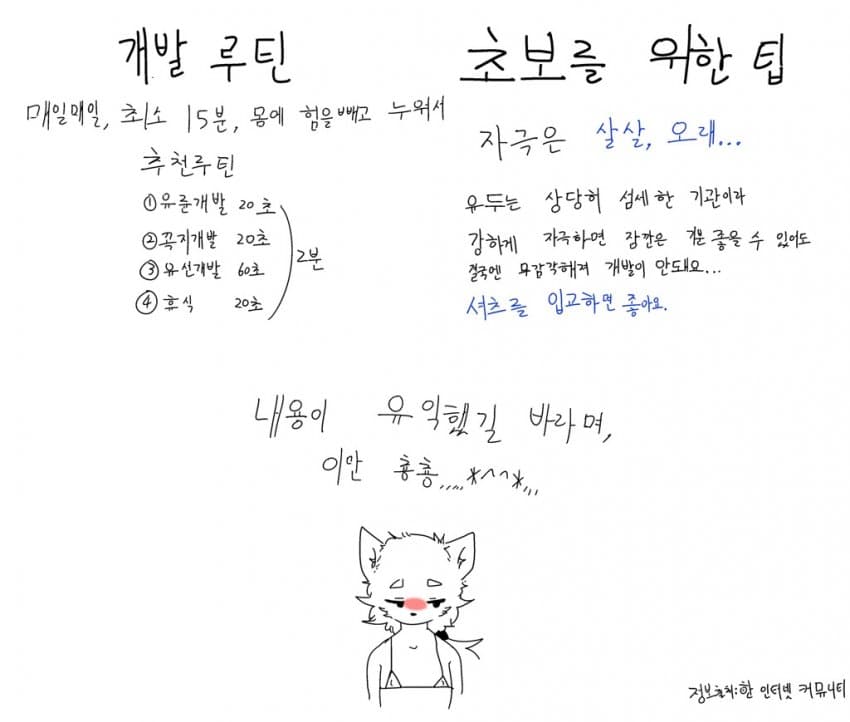 개발 루틴
매일매일, 최소 15분, 몸에 힘을 빼고 누워서
추천루틴
①유륜개발 20초
②꼭지개발 20초
③유선개발 60초
④휴식 20초
2분
초보를 위한 팁
자극은 살살, 오래...
유두는 상당히 섬세한 기관이라
강하게 자극하면 잠깐은 기분 좋을 수 있어도
결국엔 무감각해져 개발이 안돼요...
셔츠를 입고하면 좋아요.
내용이 유익했길 바라며,
이만 횽횽,,,,,*^^*,,,
정보출처:한 인터넷 커뮤니티